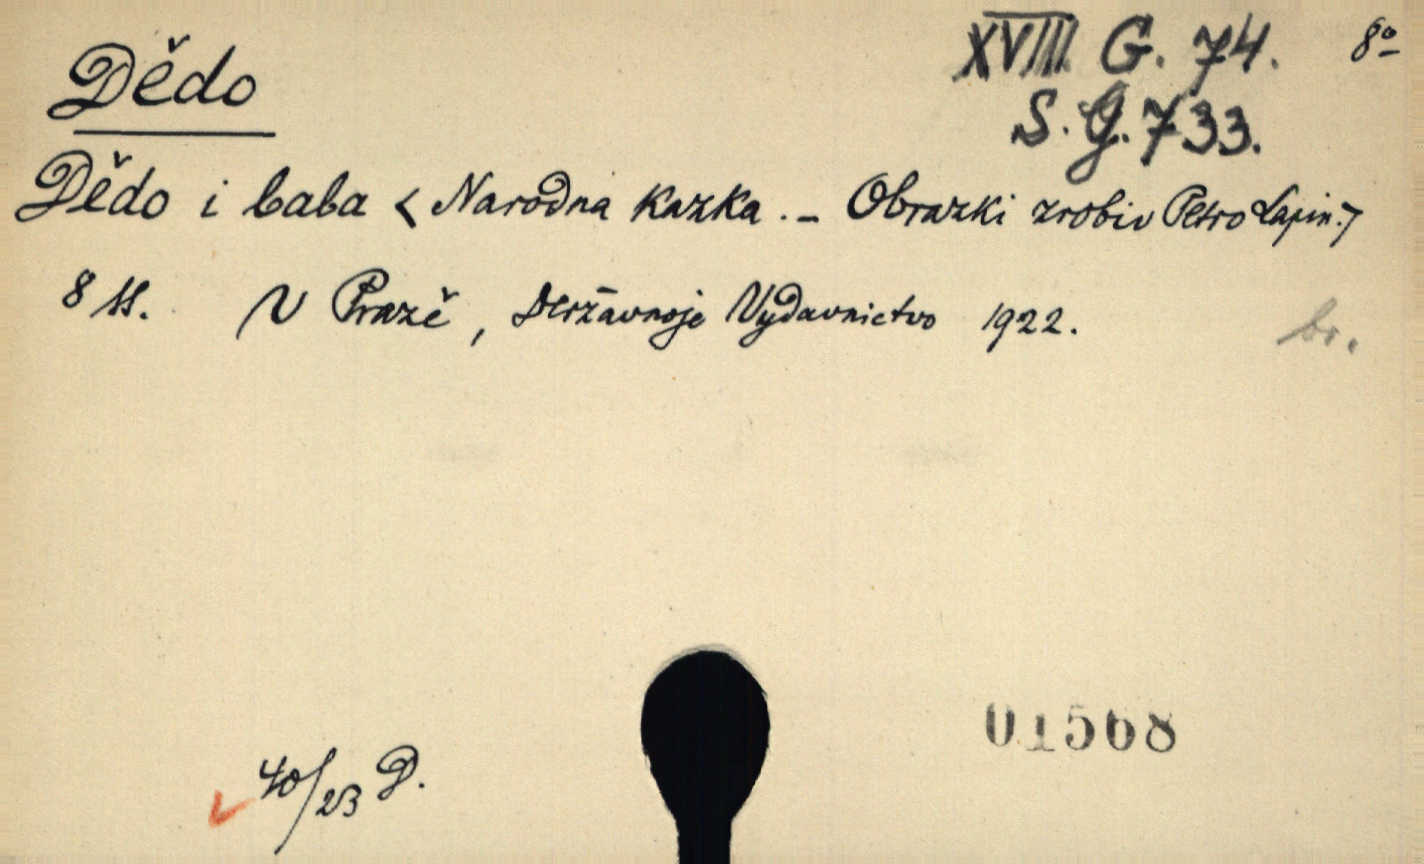 Dědo
XVIII G. 74. 8º
S. G. 733.
Dědo i baba < Narodna kazka. – Obrazki zrobiv Petro Lapin. >
8 ss. V Prazě, Deržavnoje Vydavnictvo 1922.
br.
01568
40/23 D.